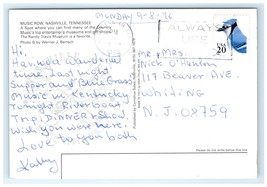 MONDAY 9-8-96
MUSIC ROW, NASHVILLE, TENNESSEE
A Spot where you can find many of the Country
Music's top entertainer's museums and gift shops
The Randy Travis Museum is a favorite.
Photo © by Werner J. Bertsch
Hi,
Having wonderful
time. Last night
Supper and Blue Grass
Music in Kentucky
Tonight Riverboat
Trip, Dinner & Show.
Wish you were here.
Love to you both
Kathy
ALWAYS
USA
20
Mr & Mrs
Nick O'Hanlon
111 Beaver AVE
Whiting
N.J. 08759